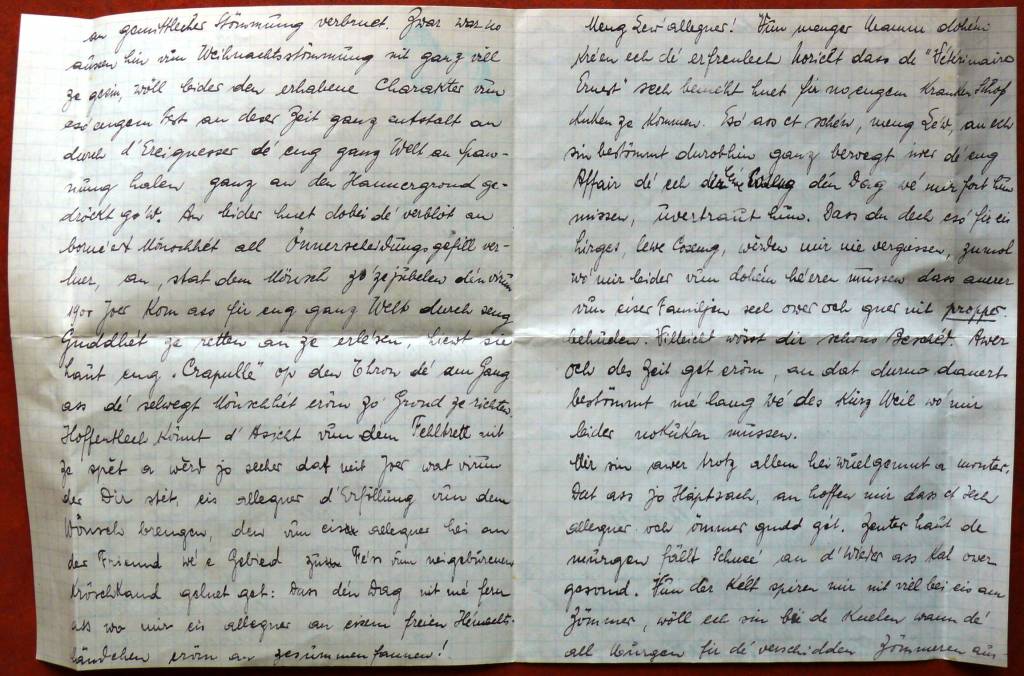 an gemittlecher Stömmung verbruet. Zwar war no
aussen hin vun Weihnachtsstömmung nit ganz vill
ze gesin, wöll leider den erhabene Charakter vun
esó engem Fest an deser Zeit ganz entstallt an
durch d'Ereignesser dé eng ganz Welt an Span-
nung halen ganz an den Hannergrond ge-
dröckt gow. An leider huet dobei dé verblöt an
bornéert Mönschhét all Önnerscheidungsgefill ver-
luer, an, stat dem Mönsch zo'zejubelen dén virun
1900 Joer Kom ass fir eng ganz Welt durch seng
Guddhét ze retten an ze erlésen, hieft sie
haut eng "Crapulle" op den Thron dé am Gang
ass dé selwegt Mönschhét eröm zo' Grond ze richten.
Hoffentlech könnt d'Asicht vun dem Fehltrett nit
ze spét a werd jo secher dat neit Joer wat virun
der Dir stét, eis alleguer d'Erföllung vun dem
Wönsch brengen, den vun eis alleguer hei an
der Friemd wé e Gebied zum Féss vum neigebuerenen
Kröschtkand geluet get: Dass dén Dag nit mé fern
ass wo mir eis alleguer an eisem freien Heimechts-
ländchen eröm an zesummen fannen!
Meng Léw alleguer! Vun menger Mamm dohém
kréen ech dé erfreulech Noricht dass de "Vétérinaire
Ernest" sech beméht huet fir no engem kranken Schof
kucken ze kommen. Esó ass et schén, meng Léw, an ech
sin bestömmt durobhin ganz beruegt iwer dé eng
Affair dé ech dén Dag wé mir fort hun
missen, uvertraut hun. Dass du dech esó fir eis
hirges, léwe Coseng, wérden mir nie vergiessen, zumol
wo mir leider vun dohém héeren mussen dass anerer
vun eiser Familjen sech ower och guer nit propper
behuelen. Villeicht wösst dir schons Beschéd. Awer
och dés Zeit get eröm, an dat durno dauert
bestömmt mé laang wé dés kurz Weil wo mir
leider nokucken mussen.
Mir sin awer trotz allem hei wuelgemut a monter.
Dat ass jo Haptsach, an hoffen mir dass et iech
alleguer och ömmer gudd gét. Zenter haut de
muergen fällt Schnéi an d'Wieder ass kal ower
gesond. Vun der Kelt spiren mir nit vill bei eis am
Zömmer, wöll ech sin bei de Kuelen wann dé
all Muergen fir dé verschidden Zömmeren aus